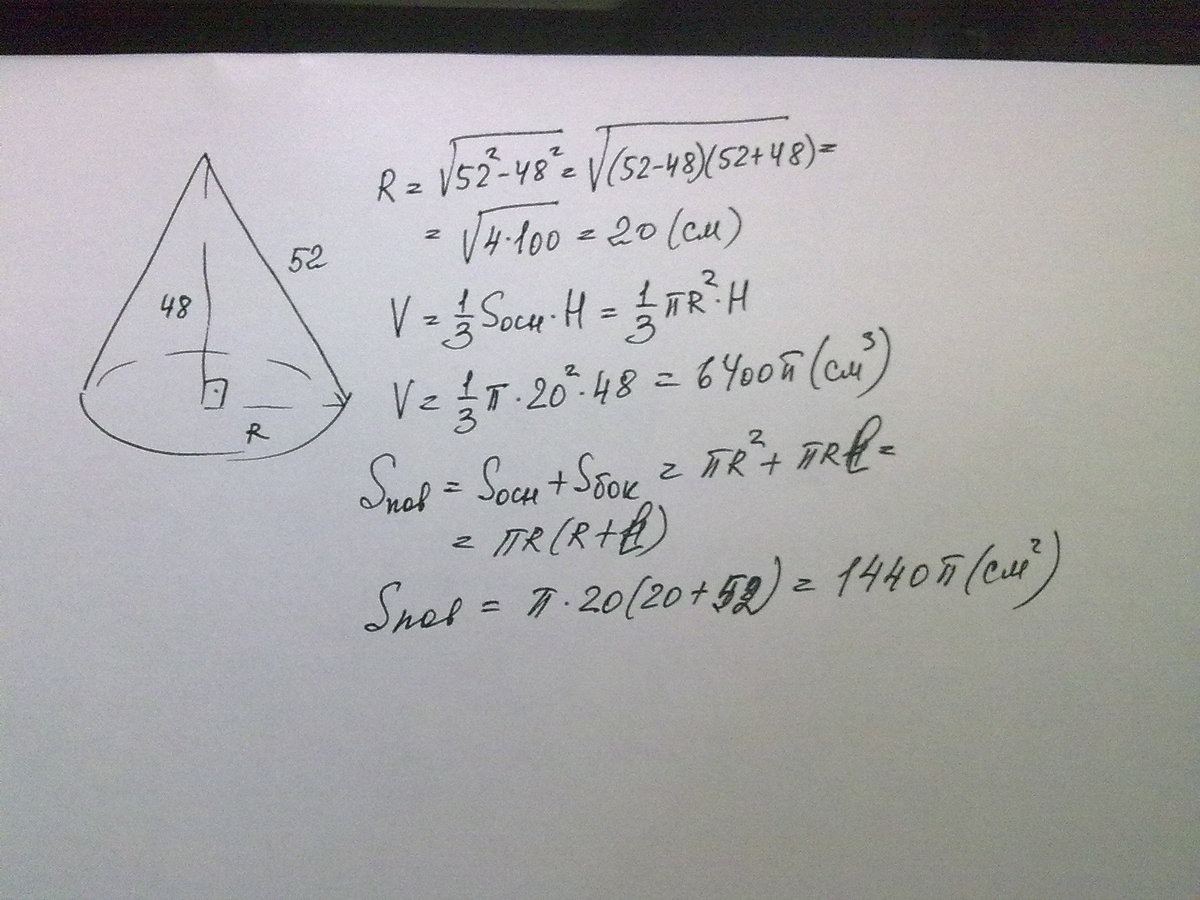 52
48
R
R = √52² - 48² = √(52-48)(52+48) =
= √4·100 = 20 (см)
V = 1/3 Sосн · H = 1/3 πR² · H
V = 1/3 π · 20² · 48 = 6400π (см³)
Sпов = Sосн + Sбок = πR² + πRl =
= πR(R+l)
Sпов = π · 20(20+52) = 1440π (см²)